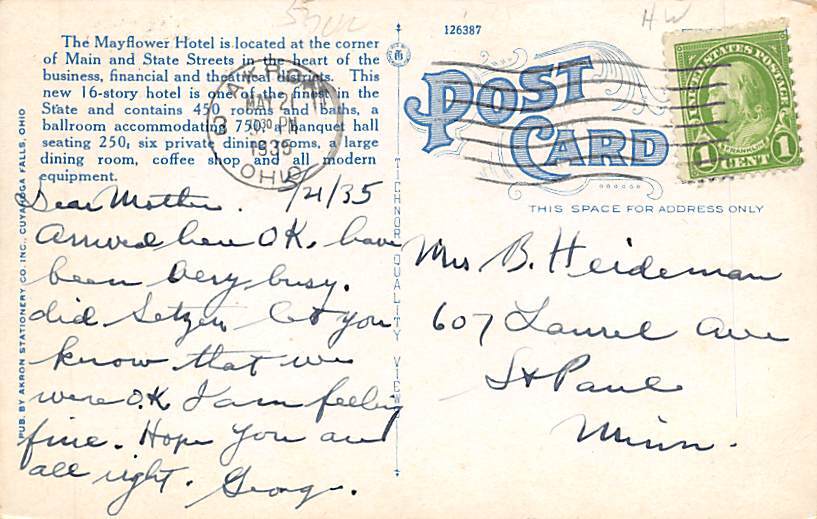 The Mayflower Hotel is located at the corner
of Main and State Streets in the heart of the
business, financial and theatrical districts. This
new 16-story hotel is one of the finest in the
State and contains 450 rooms and baths, a
ballroom accommodating 750, a banquet hall
seating 250, six private dining rooms, a large
dining room, coffee shop and all modern
equipment.
5/21/35
Dear Mother.
Arrived here OK. have
been very busy.
did Setzer let you
know that we
were O.K I am feeling
fine. Hope you are
all right. George.
PUB. BY AKRON STATIONERY CO. INC., CUYAHOGA FALLS, OHIO
TICHNOR QUALITY VIEWS
126387
HW
POST
CARD
THIS SPACE FOR ADDRESS ONLY
AKRON
MAY 21
7 30 PM
1935
OHIO
UNITED STATES POSTAGE
FRANKLIN
1 CENT 1
Mrs B. Heideman
607 Laurel Ave
St Paul
Minn.